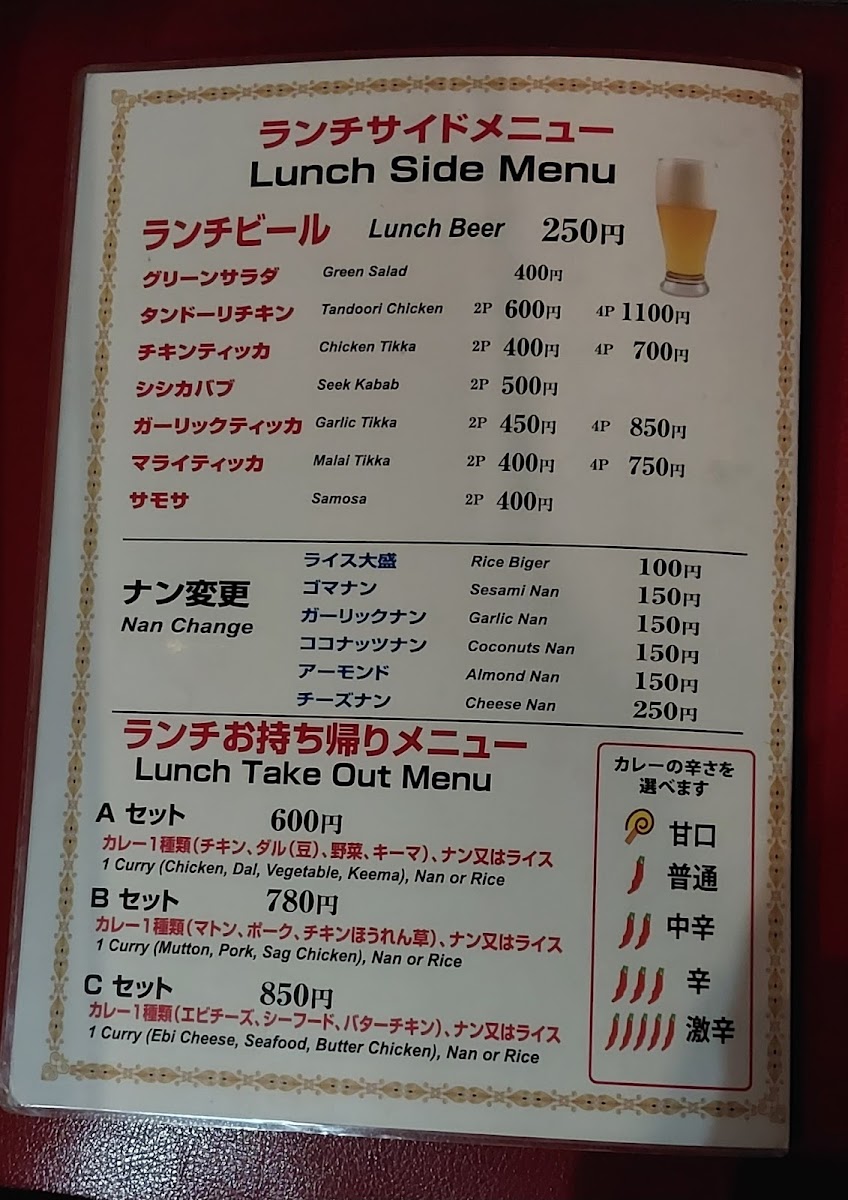 ランチサイドメニュー
Lunch Side Menu
ランチビール Lunch Beer 250円
グリーンサラダ Green Salad 400円
タンドーリチキン Tandoori Chicken 2P 600円 4P 1100円
チキンティッカ Chicken Tikka 2P 400円 4P 700円
シシカバブ Seek Kabab 2P 500円
ガーリックティッカ Garlic Tikka 2P 450円 4P 850円
マライティッカ Malai Tikka 2P 400円 4P 750円
サモサ Samosa 2P 400円
ナン変更
Nan Change
ライス大盛 Rice Biger 100円
ゴマナン Sesami Nan 150円
ガーリックナン Garlic Nan 150円
ココナッツナン Coconuts Nan 150円
アーモンド Almond Nan 150円
チーズナン Cheese Nan 250円
ランチお持ち帰りメニュー
Lunch Take Out Menu
A セット 600円
カレー1種類(チキン、ダル(豆)、野菜、キーマ)、ナン又はライス
1 Curry (Chicken, Dal, Vegetable, Keema), Nan or Rice
B セット 780円
カレー1種類(マトン、ポーク、チキンほうれん草)、ナン又はライス
1 Curry (Mutton, Pork, Sag Chicken), Nan or Rice
C セット 850円
カレー1種類(エビチーズ、シーフード、バターチキン)、ナン又はライス
1 Curry (Ebi Cheese, Seafood, Butter Chicken), Nan or Rice
カレーの辛さを
選べます
甘口
普通
中辛
辛
激辛